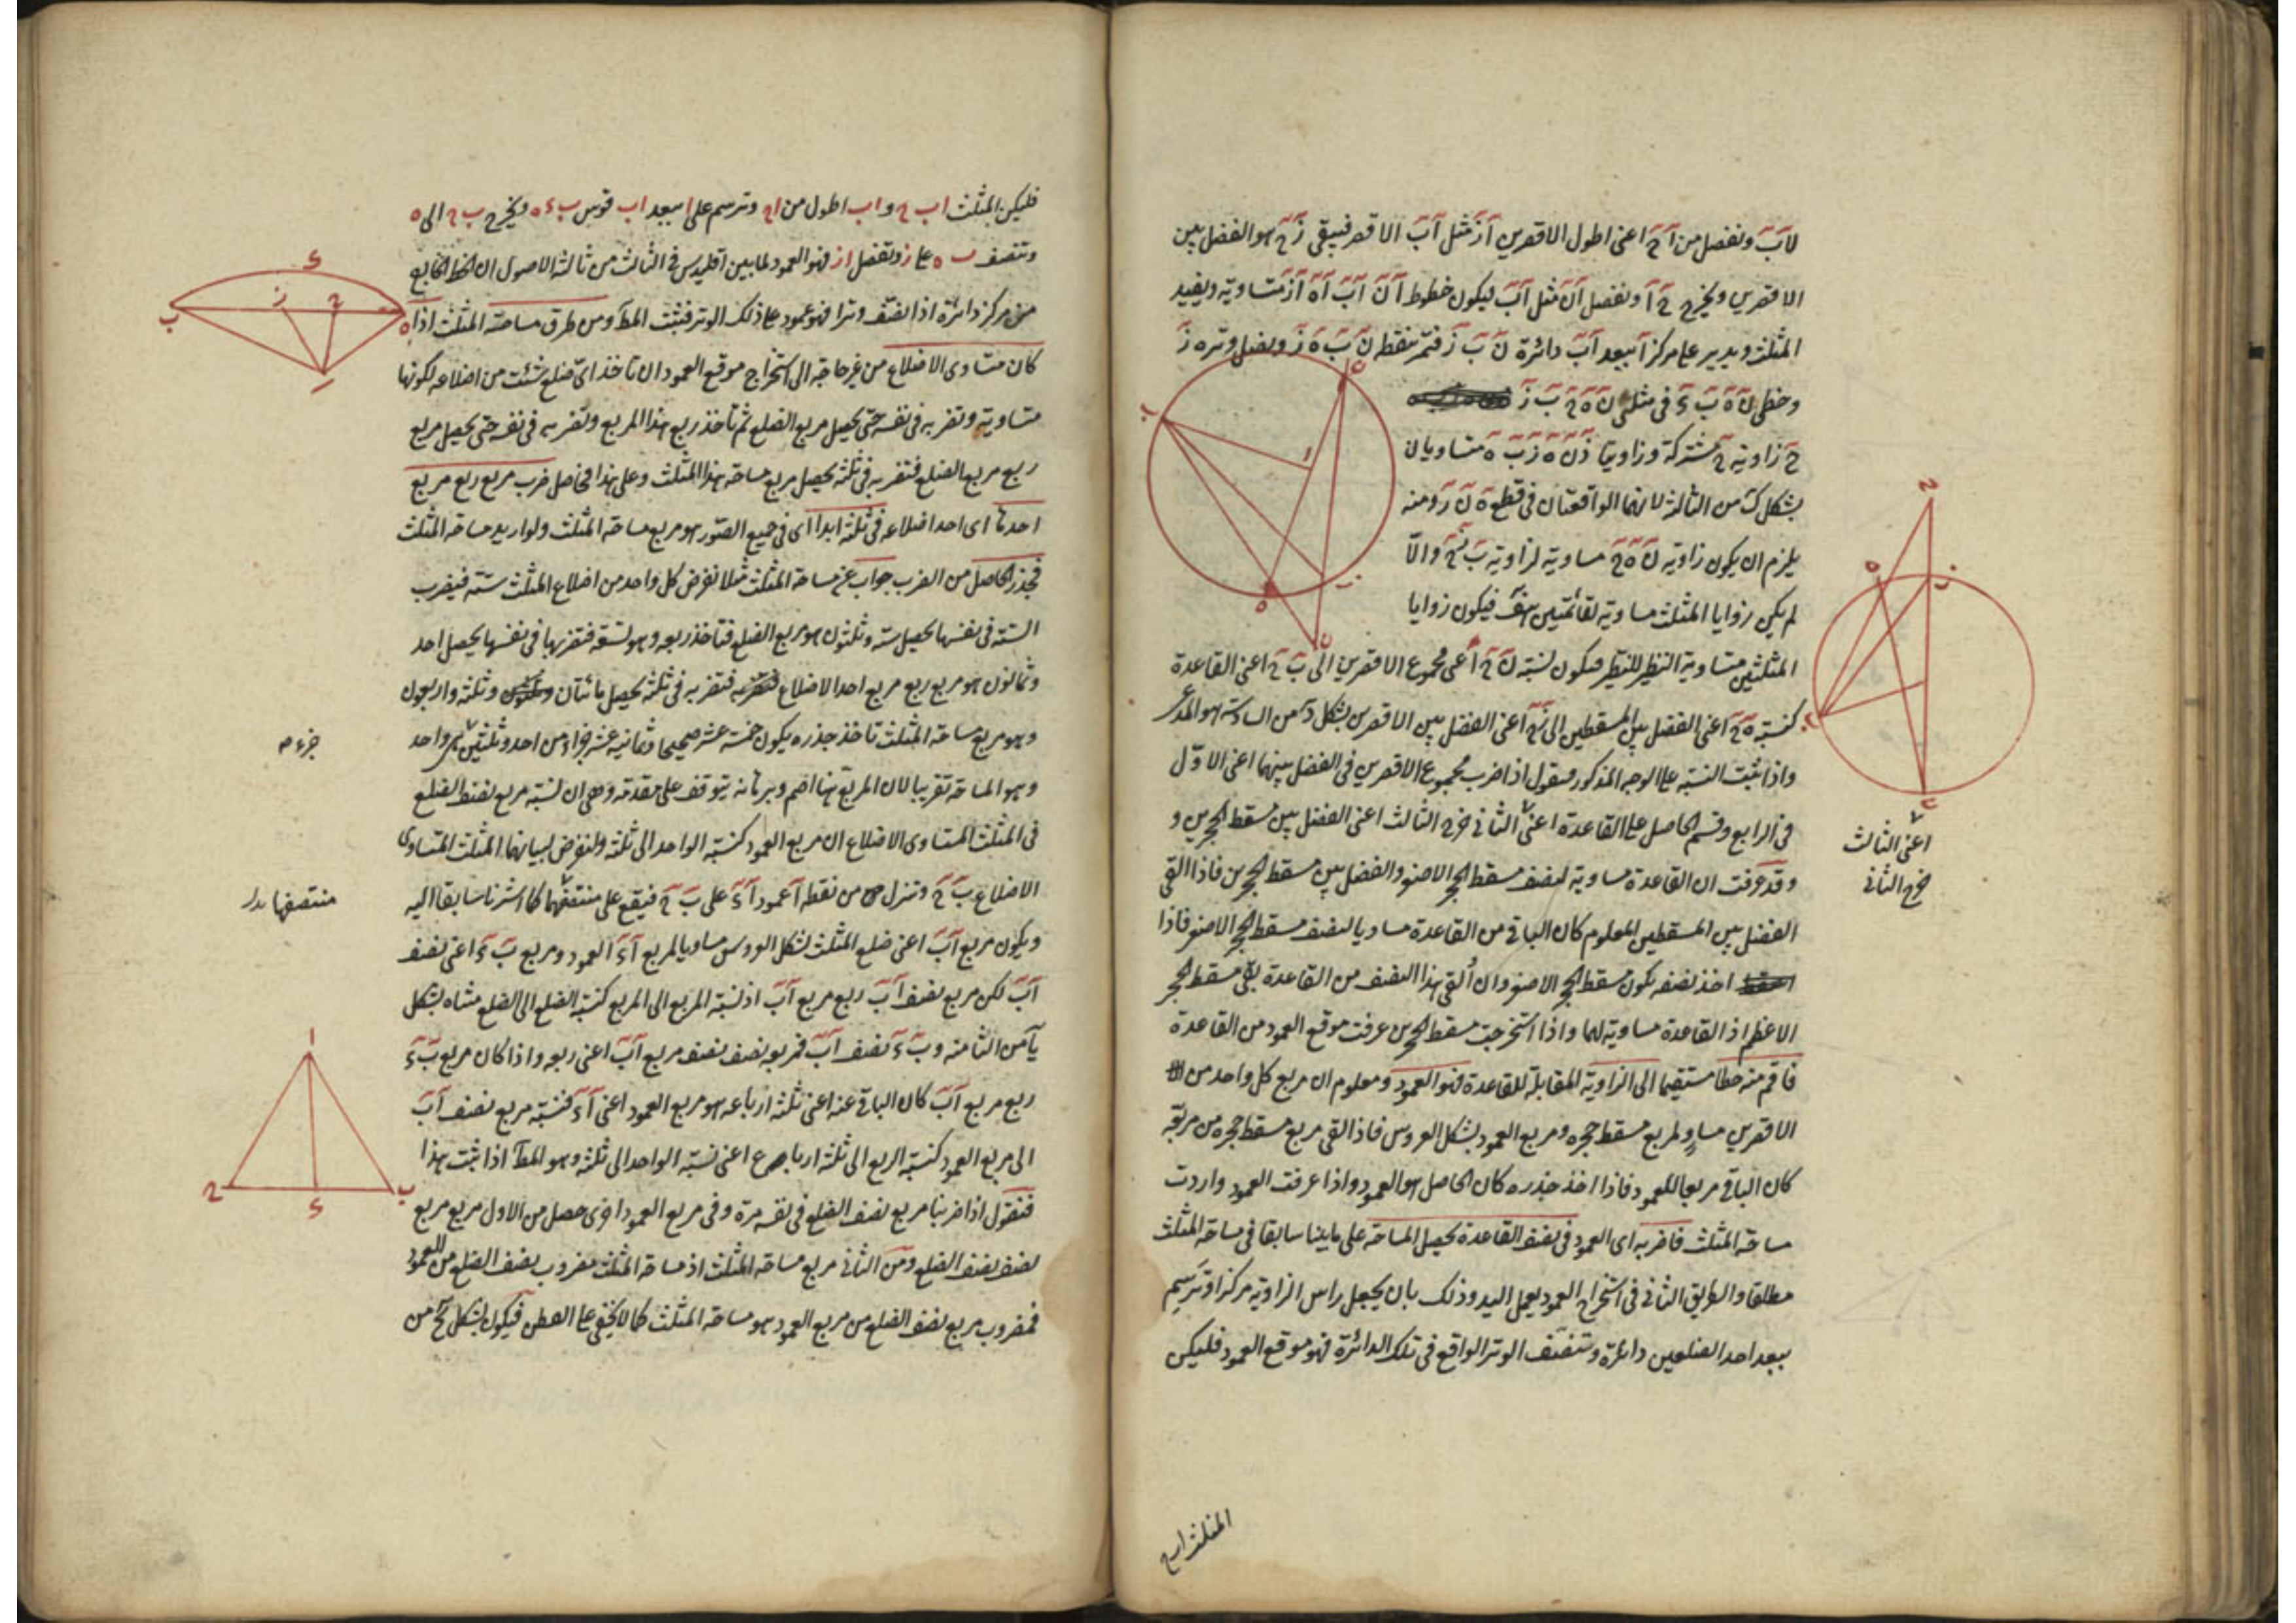 لاَبَ ونفصل من آحَ اعنى اطول الاقصرين آزَ مثل آبَ الاقصر فيبقى زَحَ هو الفضل بين
الاقصرين ويخرج حَ آ ونفصل آنَ مثل آبَ ليكون خطوط آنَ آبَ آهَ آزَ متساوية ويفيد
المثلث ويدير على مركز آ ببعد آبَ دائرة نَ بَ زَ فتمر بنقط نَ بَ هَ زَ ويصل وتر هَ زَ
وخطى نَ هَ بَ زَ فى مثلثى نَ هَ حَ بَ زَ
حَ زاوية حَ مشتركة وزاويتا زَنَ هَ زَبَ هَ متساويان
بشكل كَ من الثالثة لانهما الواقعتان فى قطع هَ نَ زَ ومنه
يلزم ان يكون زاوية نَ هَ حَ مساوية لزاوية بَ زَحَ والّا
لم يكن زوايا المثلث مساوية لقائمتين هف فيكون زوايا
المثلثين متساوية النظير للنظير فيكون نسبة نَ حَ اعنى مجموع الاقصرين الى بَ حَ اعنى القاعدة
كنسبة هَ حَ اعنى الفضل بين المسقطين الى زَحَ اعنى الفضل بين الاقصرين بشكل دَ من السادسة هو المدعى
واذا ثبت النسبة على الوجه المذكور فنقول اذا ضرب مجموع الاقصرين فى الفضل بينهما اعنى الاوّل
فى الرابع وقسم الحاصل على القاعدة اعنى الثانى خرج الثالث اعنى الفضل بين مسقط الحجرين و
قد عرفت ان القاعدة مساوية لضعف مسقط الحجر الاصغر والفضل بين مسقط الحجرين فاذا القى
الفضل بين المسقطين المعلوم كان الباقى من القاعدة مساويا لضعف مسقط الحجر الاصغر فاذا
اخذ نصفه يكون مسقط الحجر الاصغر وان اُلقى هذا النصف من القاعدة بقى مسقط الحجر
الاعظم اذ القاعدة مساوية لهما واذا استخرجت مسقط الحجرين عرفت موقع العمود من القاعدة
فاقم منه خطا مستقيما الى الزاوية المقابلة للقاعدة فهو العمود ومعلوم ان مربع كل واحد من
الاقصرين مساوٍ لمربع مسقط حجره ومربع العمود بشكل العروس فاذا القى مربع مسقط حجره من مربعه
كان الباقى مربعا للعمود فاذا اخذ جذره كان الحاصل هو العمود واذا عرفت العمود واردت
مساحة المثلث فاضربه اى العمود فى نصف القاعدة يحصل المساحة على ما بينا سابقا فى مساحة المثلث
مطلقا والطريق الثانى فى استخراج العمود بعمل اليد وذلك بان يجعل راس الزاوية مركزا وترسم
ببعد احد الضلعين دائرة وتنصف الوتر الواقع فى تلك الدائرة فهو موقع العمود فليكن
اعنى الثالث
خرج الثانى
المثلث اب ح
فليكن المثلث اب ح و اب اطول من اح وترسم على ا ببعد اب قوس ب ء ه ويخرج ب ح الى ه
وتنصف ب ه على ز ونفصل از فهو العمود لما بين اقليدس فى الثالث من ثالثة الاصول ان الخط الخارج
من مركز دائرة اذا نصف وترا فهو عمود على ذلك الوتر فثبت المط ومن طرق مساحة المثلث اذا
كان متساوى الاضلاع من غير حاجة الى استخراج موقع العمود ان تاخذ اىّ ضلع شئت من اضلاعه لكونها
متساوية وتضربه فى نفسه حتى يحصل مربع الضلع ثم تاخذ ربع هذا المربع وتضربه فى نفسه حتى يحصل مربع
ربع مربع الضلع فتضربه فى ثلثة يحصل مربع مساحة هذا المثلث وعلى هذا فحاصل ضرب مربع ربع مربع
احدها اى احد اضلاعه فى ثلثة ابدا اى فى جميع الصور هو مربع مساحة المثلث ولو اريد مساحة المثلث
فجذر الحاصل من الضرب جواب عن مساحة المثلث مثلا نفرض كل واحد من اضلاع المثلث ستة فيضرب
الستة فى نفسها يحصل ستة وثلثون هو مربع الضلع فتاخذ ربعه وهو تسعة فتضربها فى نفسها يحصل احد
وثمانون هو مربع ربع مربع احد الاضلاع فتضربه فى ثلثة يحصل مائتان وثلثة واربعون
وهو مربع مساحة المثلث تاخذ جذره يكون خمسة عشر صحيحا وثمانية عشر جزءا من احد وثلثين من واحد
وهو المساحة تقريبا لان المربع هنا اصم وبرهانه يتوقف على مقدمة وهى ان نسبة مربع نصف الضلع
فى المثلث المتساوى الاضلاع الى مربع العمود كنسبة الواحد الى ثلثة ولنفرض لبيانها المثلث المتساوى
الاضلاع بَ حَ وننزل من نقطة آ عمود آءَ على بَ حَ فيقع على منتصفهما كما اشرنا سابقا اليه
ويكون مربع آبَ اعنى ضلع المثلث بشكل العروس مساويا لمربع آءَ العمود ومربع بَ ءَ اعنى نصف
آبَ لكن مربع نصف آبَ ربع مربع آبَ اذ نسبة المربع الى المربع كنسبة الضلع الى الضلع مثناه بشكل
يآ من الثامنة وبَ ءَ نصف آبَ فمربعه نصف نصف مربع آبَ اعنى ربعه واذا كان مربع بَ ءَ
ربع مربع آبَ كان الباقى عنه اعنى ثلثة ارباعه هو مربع العمود اعنى آءَ فنسبة مربع نصف آبَ
الى مربع العمود كنسبة الربع الى ثلثة ارباع اعنى نسبة الواحد الى ثلثة وهو المط اذا ثبت هذا
فنقول اذا ضربنا مربع نصف الضلع فى نفسه مرة وفى مربع العمود اخرى حصل من الاول مربع مربع
نصف الضلع ومن الثانى مربع مساحة المثلث اذ مساحة المثلث مضروب نصف الضلع من العمود
فمضروب مربع نصف الضلع من مربع العمود هو مساحة المثلث كما لا يخفى على الفطن فيكون بشكل من
جزء م
منتصفها بدل